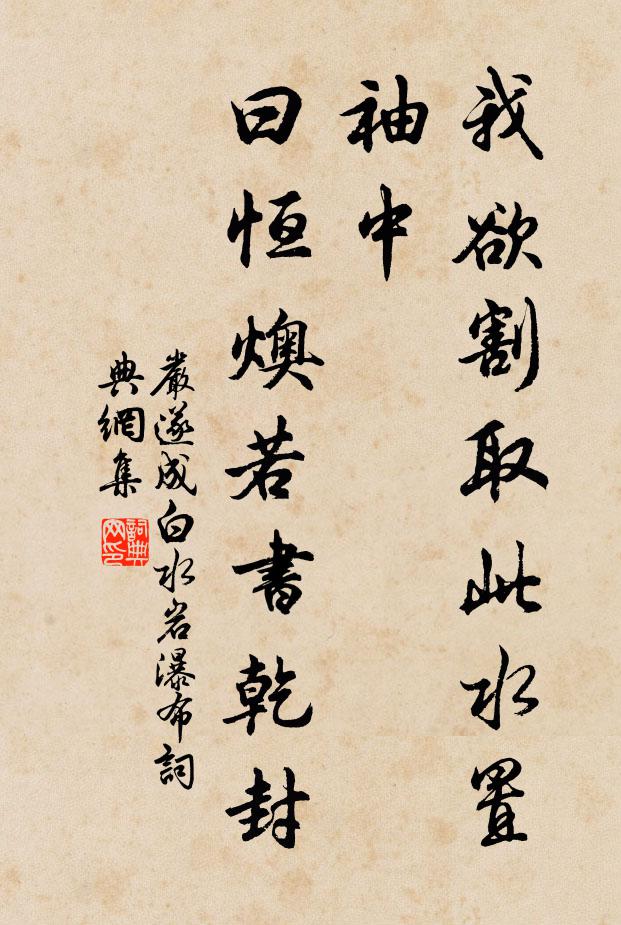 我欲割取此水置
袖中
曰恒燠若書乾封
嚴遂成白水岩瀑布詞
典網集
詞典網印